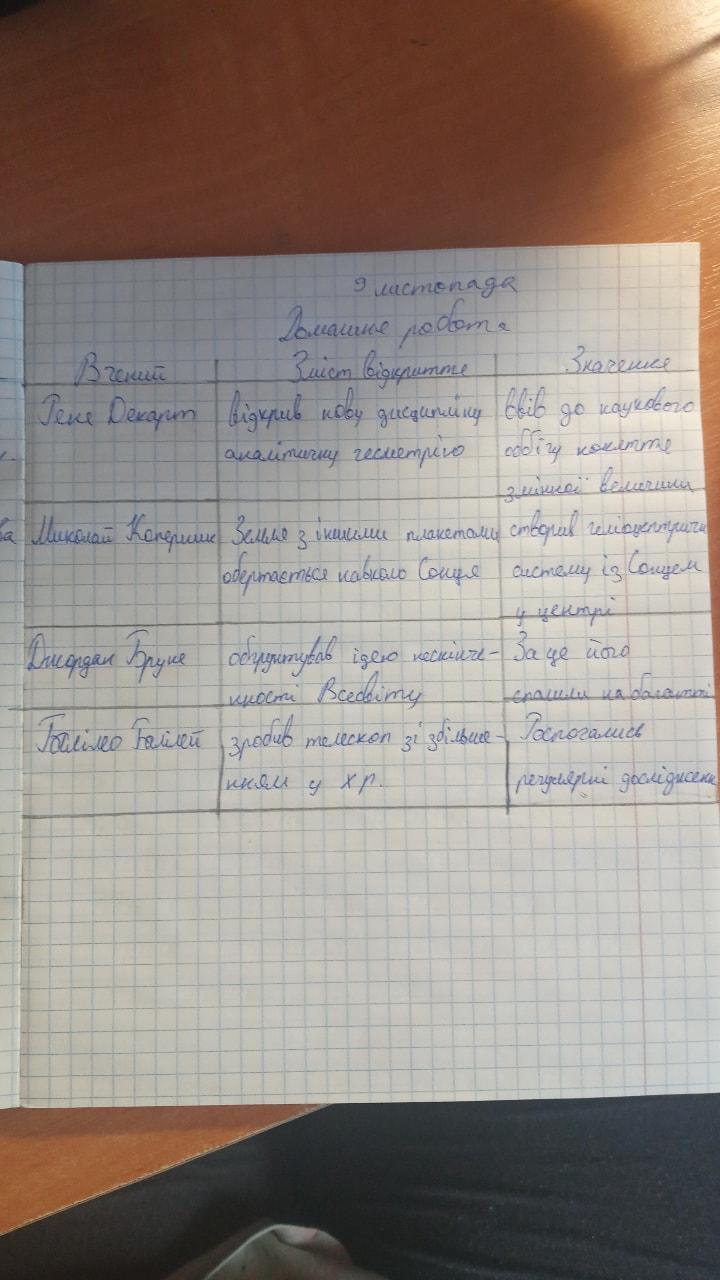 9 листопада
Домашня робота
Вчений Зміст відкриття Значення
Рене Декарт відкрив нову дисципліну ввів до наукового
аналітичну геометрію обігу поняття
змінної величини
Миколай Коперник Земля з іншими планетами створив геліоцентричн
обертається навколо Сонця систему із Сонцем
у центрі
Джордан Бруно обґрунтував ідею нескінче- За це його
нності Всесвіту спалили на багатті
Галілео Галілей зробив телескоп зі збільше- Розпочалися
нням у х р. регулярні досліджен